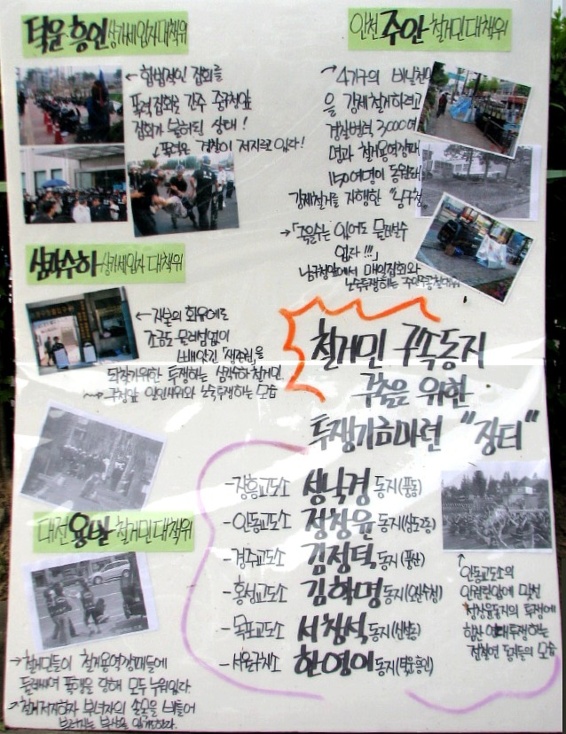 덕을·흥인 상가세입자대책위
← 합법적인 집회를
폭력집회로 간주 중구청앞
집회가 불허된 상태!
폭력은 경찰이 저지르고 있다!
인천 주안 철거민대책위
4가구의 비닐천막
을 강제철거하려고
경찰병력 3,000여
명과 철거용역깡패
150여명이 동원돼
강제철거를 자행한 "남구청"
→ "죽을수는 있어도 물러설수
없다!!!"
남구청앞에서 매일집회와
노숙투쟁하는
삼각수하 상가세입자 대책위
← 자본의 회유에도
조금도 흔들림없이
빼앗긴 "생존권"을
되찾기위한 투쟁하는 삼각수하 철거민.
구청앞 1인시위와 노숙투쟁하는 모습
철거민 구속동지
구출을 위한
투쟁기금마련 "장터"
-장흥교도소 성낙경 동지(풍동)
-안동교도소 정창윤 동지(상도2동)
-경주교도소 김정덕 동지
-홍성교도소 김하명 동지(오산수청)
-목포교도소 서청석 동지
-서울구치소 한영이 동지(덕을,흥인)
안동교도소의
인권탄압에 맞선
정창윤동지의 투쟁에
함찬 연대투쟁하는
전철연 동지들의 모습
대전 용방 철거민대책위
→ 철거민들이 철거용역깡패들에
둘러싸여 폭행을 당해 모두 누워있다.
→ 철거저지하자 부녀자의 손목을 비틀어
부러지는 부상을